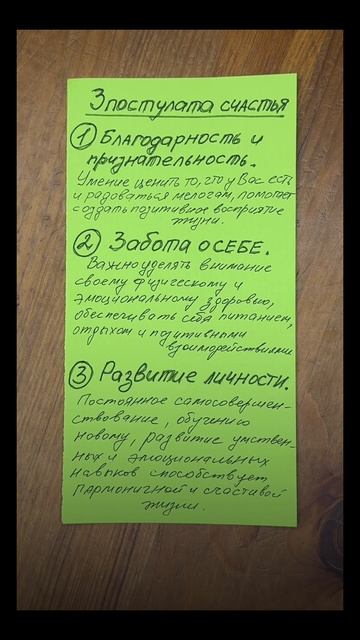 3 постулата счастья
1 Благодарность и
признательность.
Умение ценить то, что у Вас есть
и радоваться мелочам, помогает
создать позитивное восприятие
жизни.
2 Забота о СЕБЕ.
Важно уделять внимание
своему физическому и
эмоциональному здоровью,
обеспечивать себя питанием,
отдыхом и позитивными
взаимодействиями
3 Развитие личности.
Постоянное самосовершен-
ствование, обучению
новому, развитие умствен-
ных и эмоциональных
навыков способствует
гармоничной и счастливой
жизни.